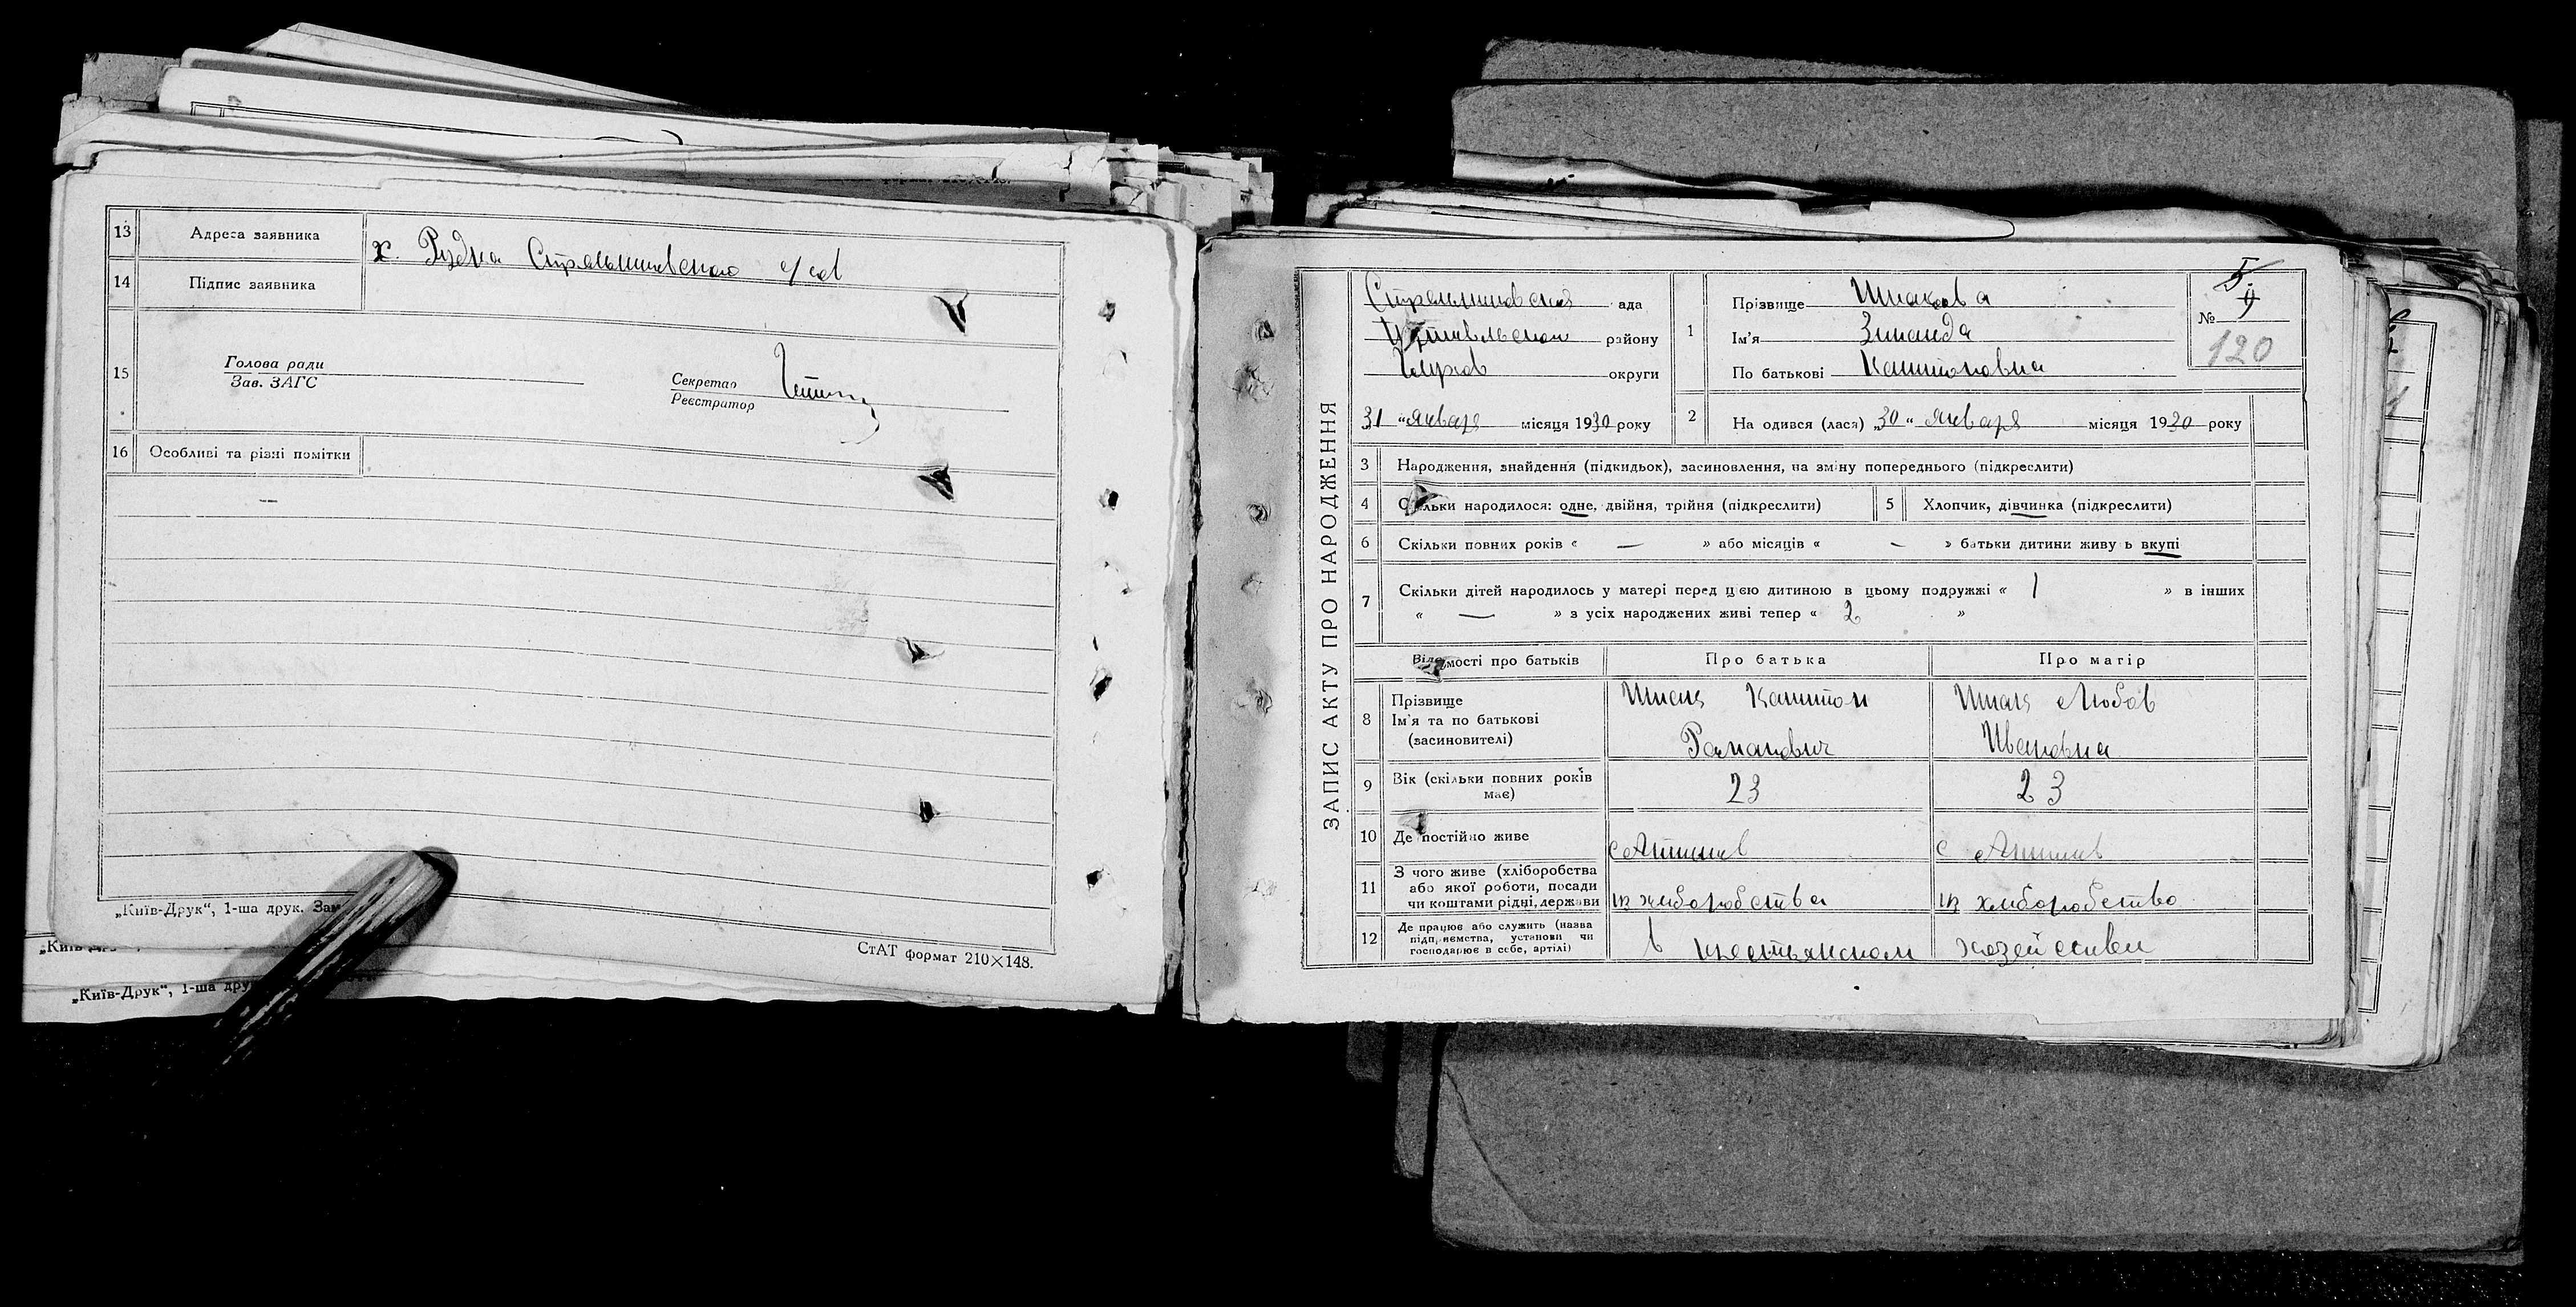 13 Адреса заявника х. Рудка Стрельниковского с/сов
14 Підпис заявника
15 Голова ради
Зав. ЗАГС
Секретар
Реєстратор
16 Особливі та різні помітки
„Київ-Друк“, 1-ша друк. Зам
СтАТ формат 210×148.
„Київ-Друк“, 1-ша друк
ЗАПИС АКТУ ПРО НАРОДЖЕННЯ
Стрельниковский ада
Путивльского району
Глухов округи
31 „Января місяця 1930 року
1 Прізвище
Ім'я Зинаида
По батькові Капитоновна
5
№ 9
120
2 На одився (лася) „30“ Января місяця 1930 року
3 Народження, знайдення (підкидьок), засиновлення, на зміну попереднього (підкреслити)
4 Скільки народилося: одне, двійня, трійня (підкреслити)
5 Хлопчик, дівчинка (підкреслити)
6 Скільки повних років « — » або місяців « — » батьки дитини живу ь вкупі
7 Скільки дітей народилось у матері перед цією дитиною в цьому подружжі « 1 » в інших
« — » з усіх народжених живі тепер « 2 »
Відомості про батьків Про батька Про матір
8 Прізвище
Ім'я та по батькові
(засиновителі)
Капитон
Романович
Любов
Ивановна
9 Вік (скільки повних років має) 23 23
10 Де постійно живе с с
11 З чого живе (хліборобства
або якої роботи, посади
чи коштами рідні, держави
из хлиборобства из хлиборобство
12 Де працює або служить (назва
підприємства, установи чи
господарює в себе, артілі)
в крестьянском хозействе